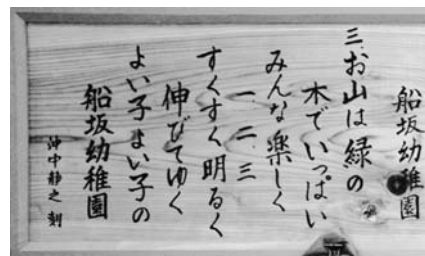 船坂幼稚園
三、お山は緑の
木でいっぱい
みんな楽しく
一 二 三
すくすく明るく
伸びてゆく
よい子よい子の
船坂幼稚園
沖中静之 刻